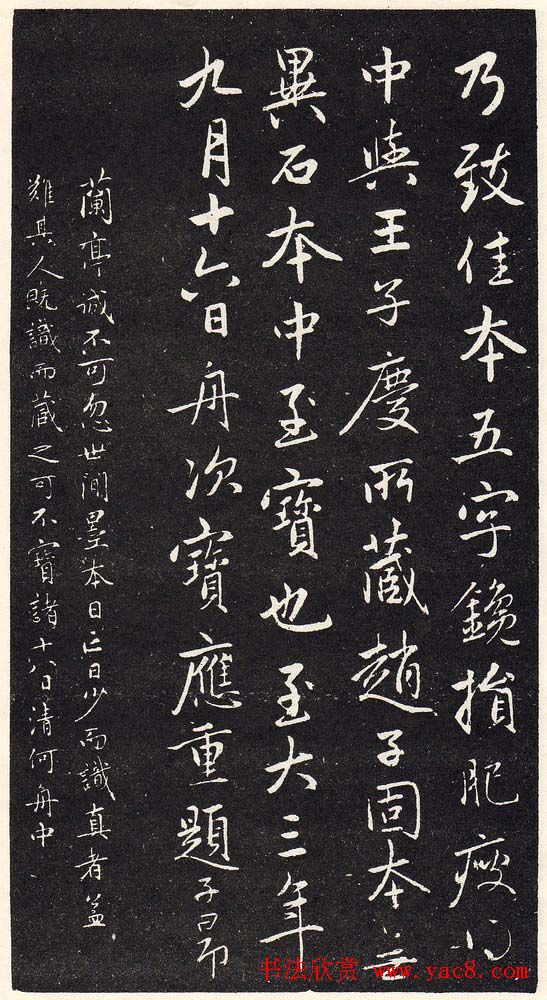 乃致佳本五字鑱損肥瘦得
中與王子慶所藏趙子固本無
異石本中至寶也至大三年
九月十六日舟次寶應重題子昂
蘭亭誠不可忽世間墨本日亡日少而識真者益
難其人既識而藏之可不寶諸十八日清河舟中
书法欣赏 www.yac8.com